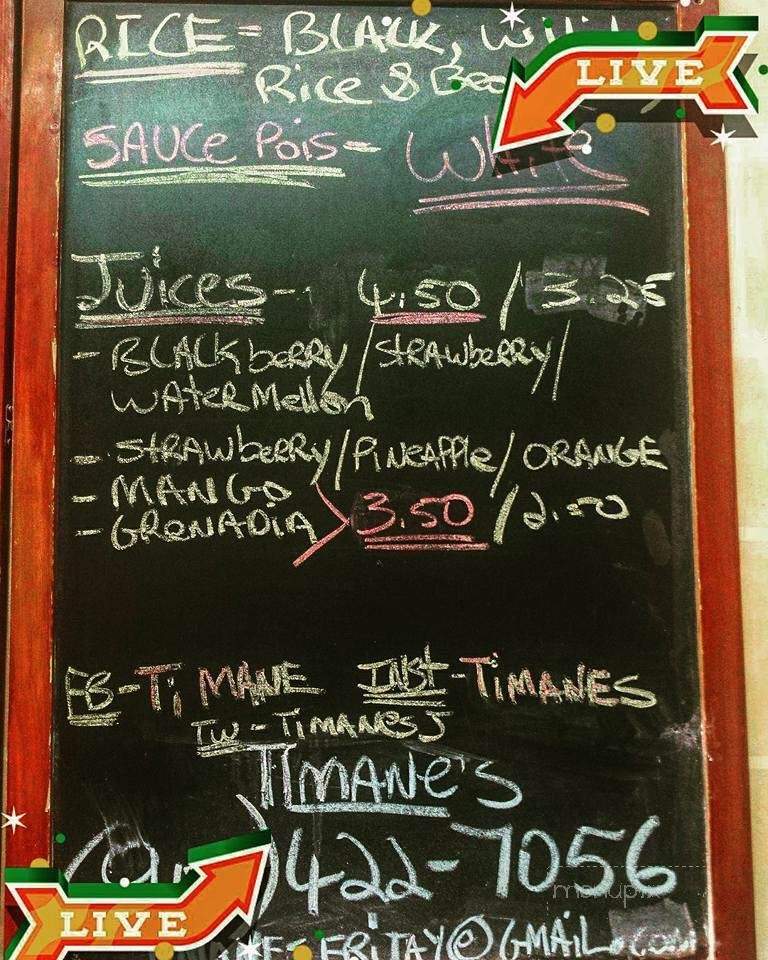 RICE = BLACK,
Rice &
SAUCE POIS = WHITE
LIVE
JUICES - 4.50 / 3.25
- BLACKberry / STRAWberry /
WATERMellon
- STRAWberry / PINEAPPle / ORANGE
- MANGO
- GRENADIA 3.50 / 2.50
FB - Ti MANE INST - TiMANES
TW - TIMANESJ
TIMANE'S
422-7056
LIVE
FRITAY@GMAIL.COM